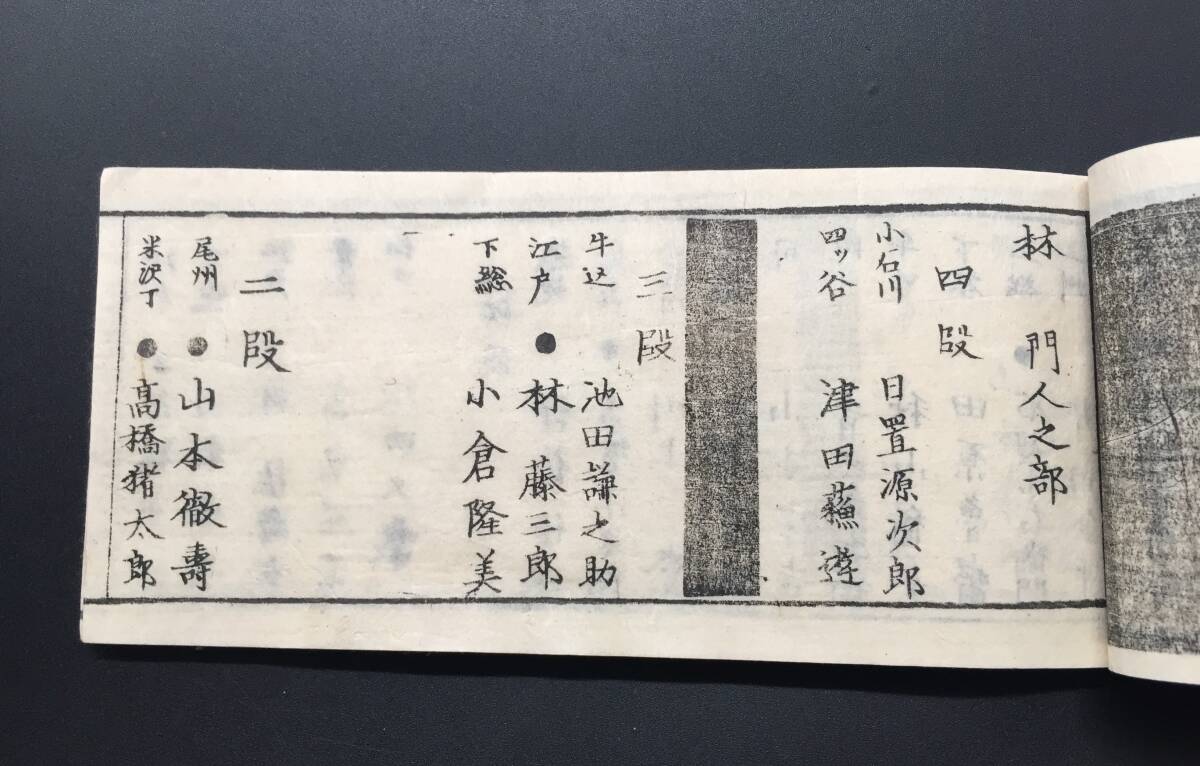 林 門人之部
四段
小石川 日置源次郎
四ッ谷 津田蘓遊
三段
牛込 池田謙之助
江戸 ● 林 藤三郎
下総 小倉隆美
二段
尾州 ● 山本徹壽
米沢丁 ● 髙橋猪太郎